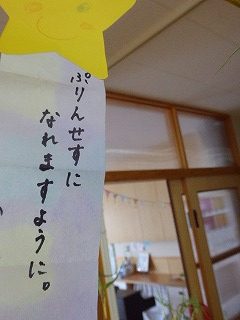 ぷりんせすに
なれますように。